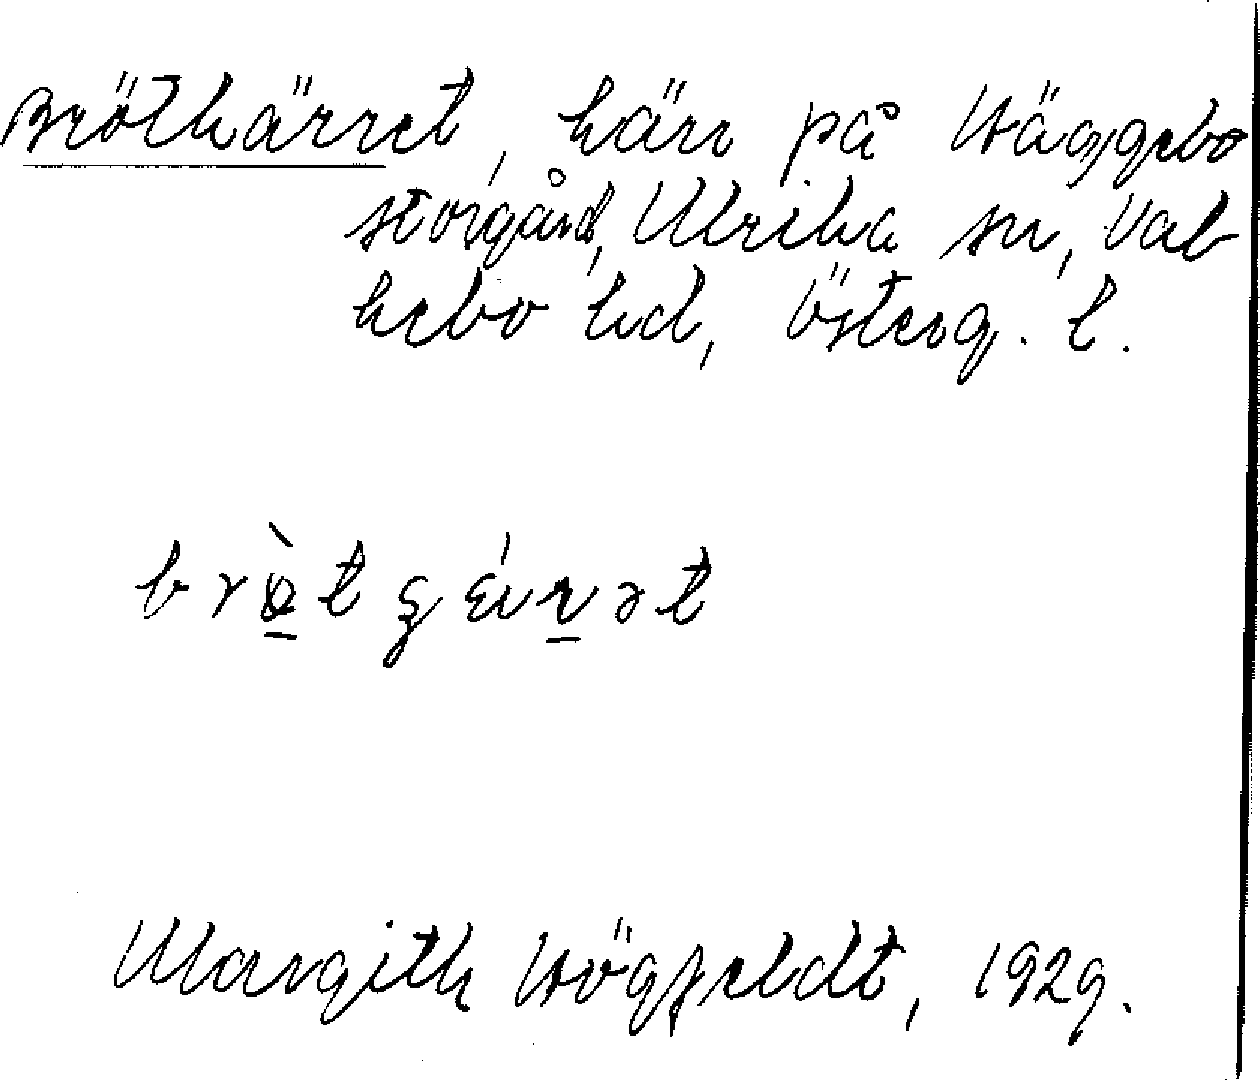 Brötkärret, kärr på Häggebo
storgård, Ulrika sn, Val-
kebo hd, Österg. l.
Margith Högfeldt, 1929.